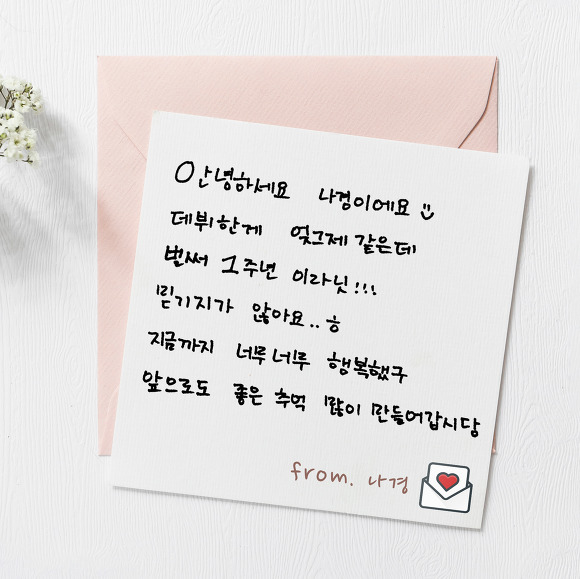 안녕하세요 나경이에요 :)
데뷔한게 엊그제 같은데
벌써 1주년 이라닛!!!
믿기지가 않아요..ㅎ
지금까지 너루너루 행복했구
앞으로도 좋은 추억 많이 만들어갑시담
from. 나경